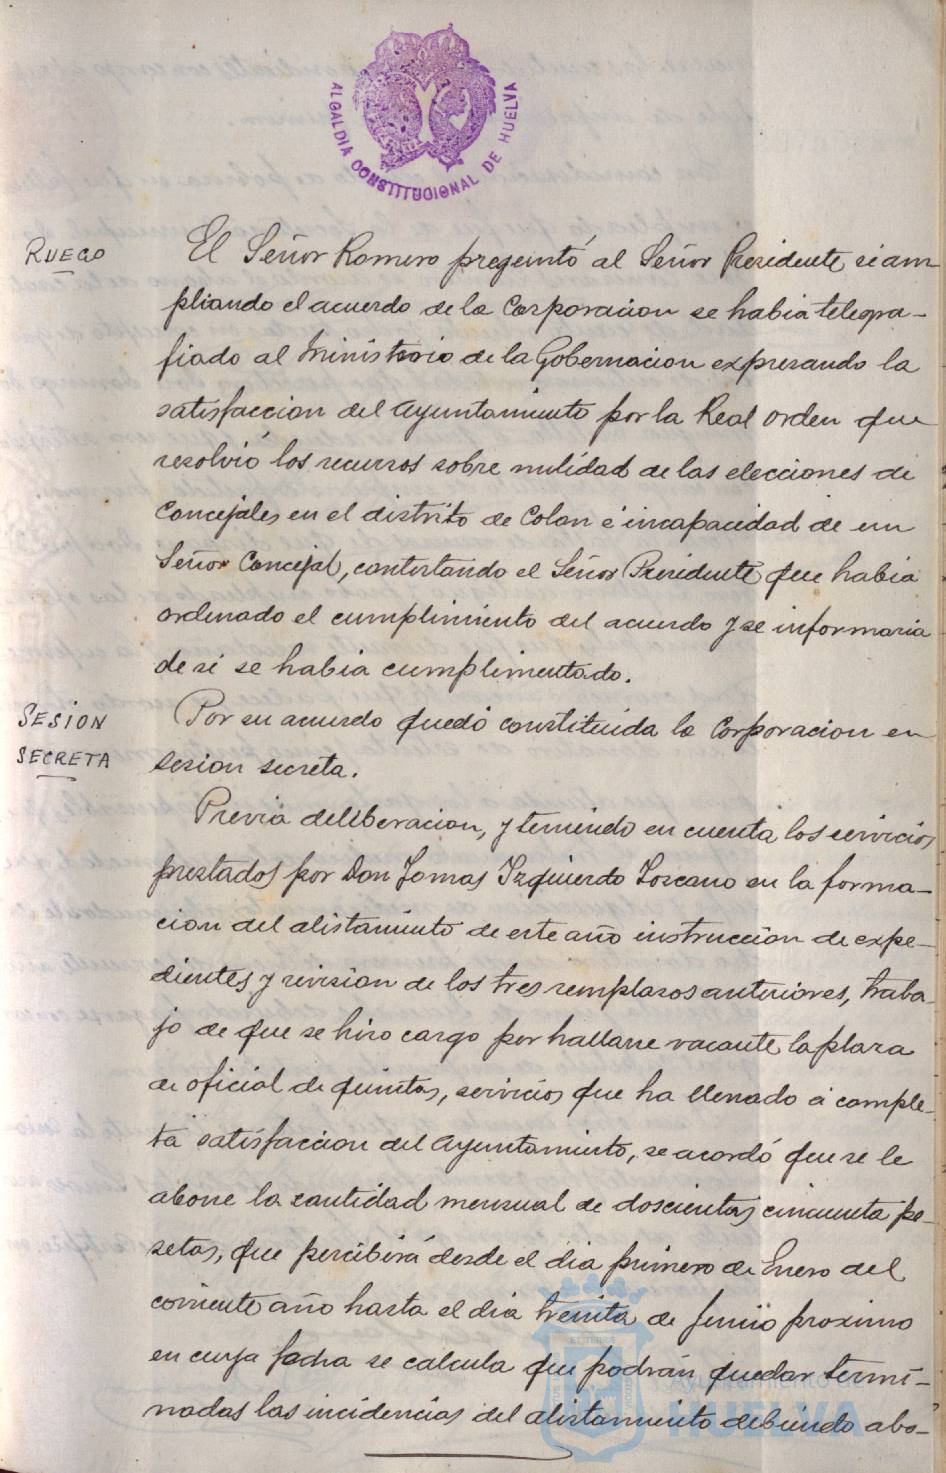 ALCALDIA CONSTITUCIONAL DE HUELVA
RUEGO
El Señor Romero preguntó al Señor Presidente si am
pliando el acuerdo de la Corporacion se habia telegra-
fiado al Ministerio de la Gobernacion expresando la
satisfaccion del Ayuntamiento por la Real orden que
resolvió los recursos sobre nulidad de las elecciones de
Concejales en el distrito de Colon é incapacidad de un
Señor Concejal, contestando el Señor Presidente que habia
ordenado el cumplimiento del acuerdo y se informaria
de si se habia cumplimentado.
SESION
SECRETA
Por su acuerdo quedó constituida la Corporacion en
sesion secreta.
Previa deliberacion, y teniendo en cuenta los servicios
prestados por Don Tomas Izquierdo Toscano en la forma-
cion del alistamiento de este año instruccion de expe-
dientes y revision de los tres remplazos anteriores, traba-
jo de que se hizo cargo por hallarse vacante la plaza
de oficial de quintas, servicios que ha llenado á comple-
ta satisfaccion del Ayuntamiento, se acordó que se le
abone la cantidad mensual de doscientas cincuenta pe-
setas, que percibirá desde el dia primero de Enero del
corriente año hasta el dia treinta de Junio proximo
en cuya fecha se calcula que podrán quedar termi-
nadas las incidencias del alistamiento debiendo abo-
Ayuntamiento de
HUELVA